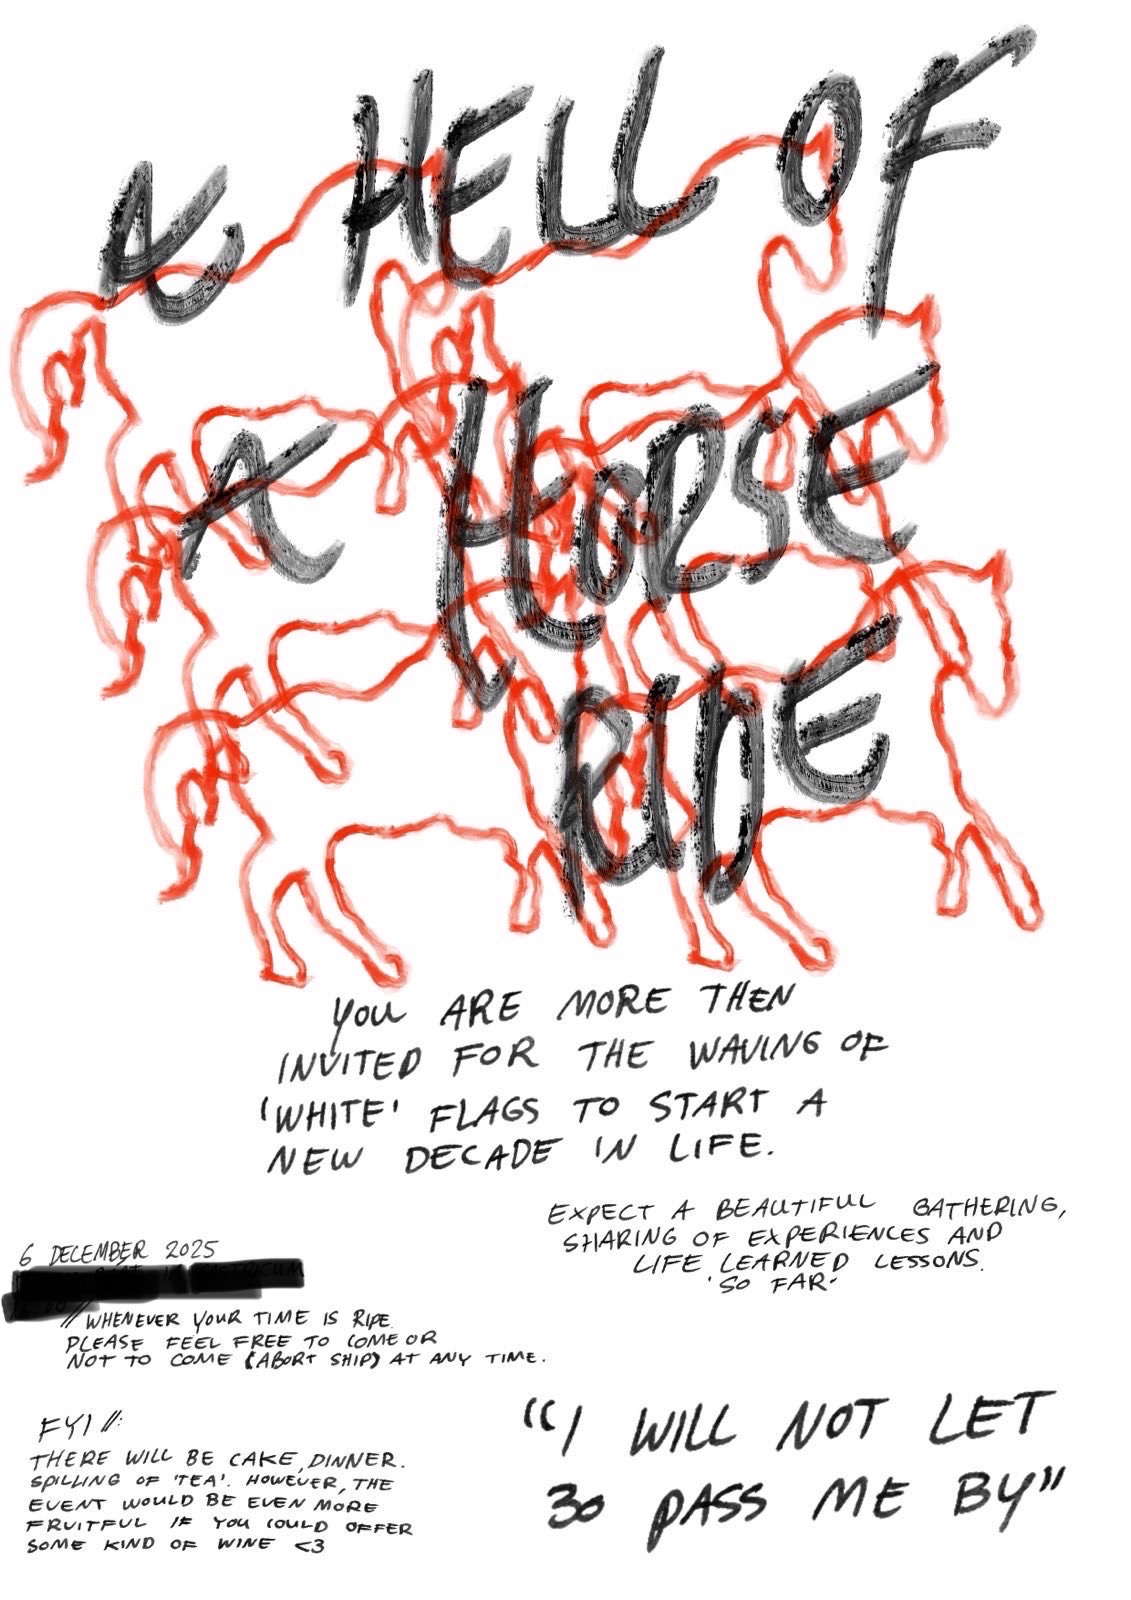 A HELL OF
A HORSE
RIDE
YOU ARE MORE THEN
INVITED FOR THE WAVING OF
'WHITE' FLAGS TO START A
NEW DECADE IN LIFE.
EXPECT A BEAUTIFUL GATHERING,
SHARING OF EXPERIENCES AND
LIFE LEARNED LESSONS.
'SO FAR'
6 DECEMBER 2025
// WHENEVER YOUR TIME IS RIPE.
PLEASE FEEL FREE TO COME OR
NOT TO COME (ABORT SHIP) AT ANY TIME.
FYI //:
THERE WILL BE CAKE, DINNER.
SPILLING OF 'TEA'. HOWEVER, THE
EVENT WOULD BE EVEN MORE
FRUITFUL IF YOU COULD OFFER
SOME KIND OF WINE <3
"I WILL NOT LET
30 PASS ME BY"